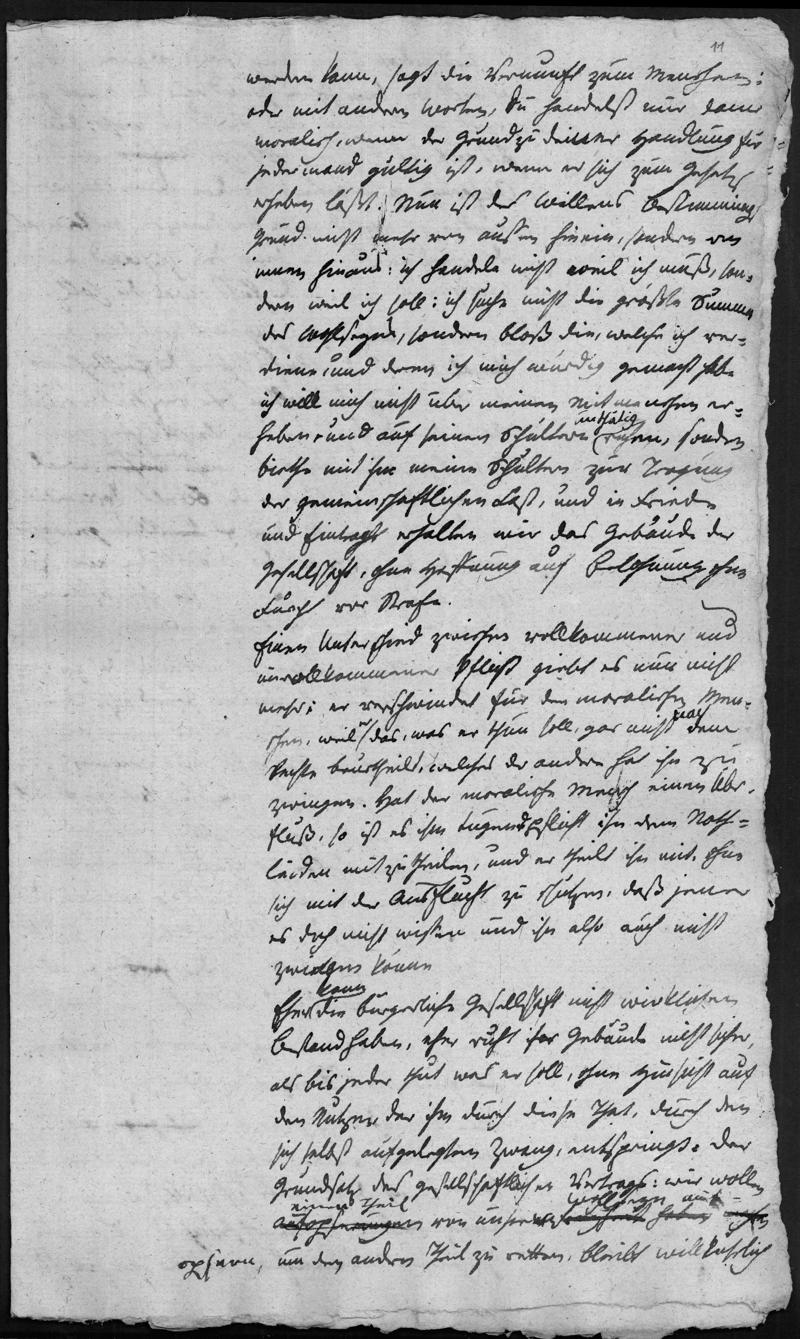 11
werden kann, sagt die Vernunft zum Menschen:
oder mit andern Worten, Du handelst nur dann
moralisch, wenn der Grund zu deiner Handlung für
jedermand gültig ist, wenn er sich zum Gesetz
erheben läßt. Nun ist des Willens Bestimmungs
Grund nicht mehr von aussen hinein, sondern von
innen hinaus: ich handele nicht weil ich muß, son-
dern weil ich soll: ich suche nicht die größte Summe
des Wohlseyns, sondern bloß die, welche ich ver-
diene, und deren ich mich würdig gemacht habe
ich will mich nicht über meinen Mitmenschen er-
heben, und auf seinen Schultern unthätig ruhen, sondern
biethe mit ihm meine Schultern zur Tragung
der gemeinschaftlichen Last, und in Friede
und Eintracht erhalten wir das Gebäude der
Gesellschaft, ohne Hoffnung auf Belohnung ohne
Furcht vor Strafe.
Einen Unterschied zwischen vollkommener und
unvollkommener Pflicht giebt es nun nicht
mehr; er verschwindet für den moralischen Men-
schen, weil er das, was er thun soll, gar nicht nach dem
Rechte beurtheilt, welches der andere hat ihn zu
zwingen. Hat der moralische Mensch einen Über-
fluß, so ist es ihm Tugendpflicht ihn dem Noth-
leiden mitzutheilen, und er theilt ihn mit, ohne
sich mit der Ausflucht zu schützen, daß jener
es doch nicht wissen und ihn also auch nicht
zwingen könne
Eher kann die bürgerliche Gesellschaft nicht wirklichen
Bestand haben, eher ruht ihr Gebäude nicht sicher,
als bis jeder thut was er soll, ohne Hinsicht auf
den Nutzen, der ihm durch diese That, durch den
sich selbst aufgelegten Zwang, entspringt. Der
Grundsatz des gesellschaftlichen Vertrags: wir wollen
einen Theil von unsern auf-
opfern, um den andern Theil zu retten, bleibt willkührlich